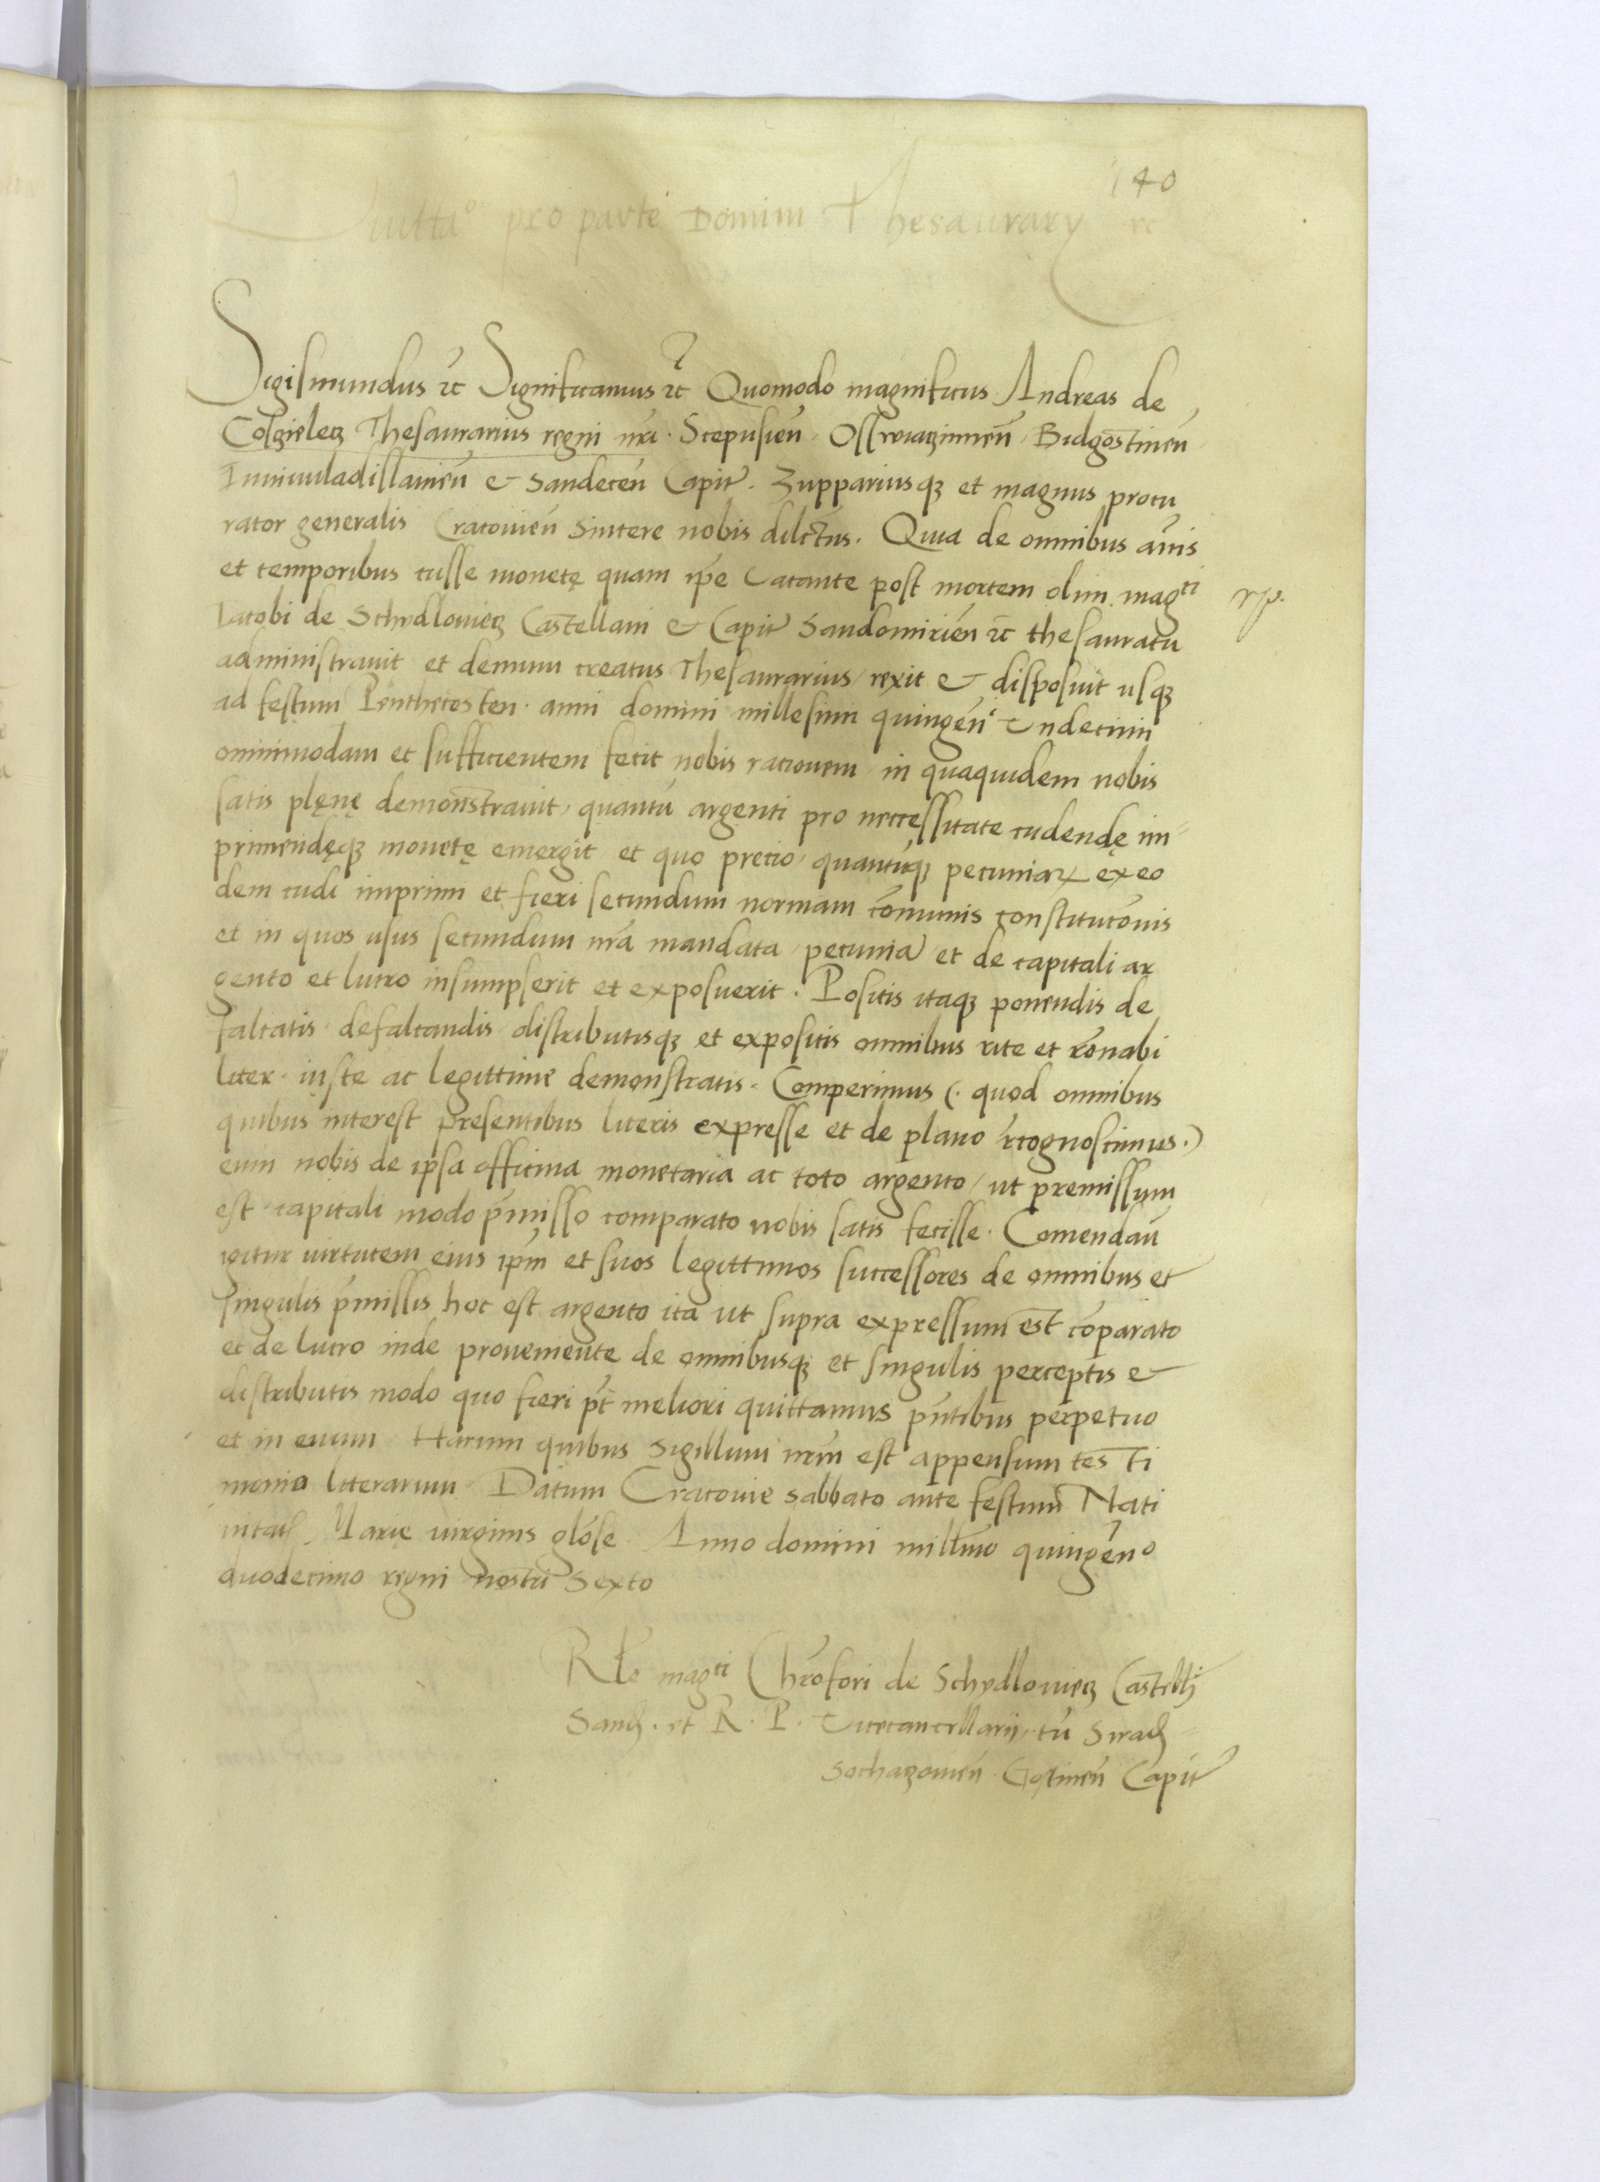 140
Quitta° pro parte Domini Thesaurary rc
Sigismundus rc̄ Significamus rc̄ Quomodo magnificus Andreas de
Cosczielecz Thesaurarius regni nr̄i. Scepusien̄ Osswiaczimen̄ Bidgostinen̄
Iuniuuladislauien̄ & Sandecen̄ Capit̄. Zuppariusq3 et magnus procu
rator generalis Cracouien̄ Sincere nobis dilectus. Quia de omnibus an̄is
et temporibus cusse monetę quam ip̄e vacante post mortem olim mag^ci
Iacobi de Schydlowiecz Castellani & Capit̄ Sandomirien̄ rc̄ thesauratu
administrauit et demum creatus Thesaurarius, rexit & disposuit usq3
ad festum Penthecosten. anni domini millesimi quingen^i Undecimi
omnimodam et sufficientem fecit nobis rationem in quaquidem nobis
satis plęnę demonstrauit, quantū argenti pro necessitate cudendę im-
primendęq3 monetę emergit et quo precio, quantūq3 pecuniaꝝ ex eo
dem cudi imprimi et fieri secundum normam cōmunis constitutōnis
et in quos usus secundum nr̄a mandata, pecunia et de capitali ar
gento et lucro insumpserit et exposuerit. Positis itaq3 ponendis de
falcatis defalcandis distributisq3 et expositis omnibus rite et rōnabi
liter. iuste ac legittime demonstratis. Comperimus (. quod omnibus
quibus interest presentibus literis expresse et de plano r̄cognoscimus.)
eum nobis de ipsa officina monetaria ac toto argento, ut premissum
est capitali modo p̄misso comparato nobis satis fecisse. Comendan̄
igitur uirtutem eius ip̄m et suos legittimos successores de omnibus et
singulis p̄missis hoc est argento ita ut supra expressum est cōparato
et de lucro inde proueniente de omnibusq3 et singulis perceptis &
distributis modo quo fieri pt̄ meliori quittamus pn̄tibus perpetuo
et in euum Harum quibus Sigillum nr̄m est appensum testi
monio literarum Datum Cracouie sabbato ante festum Nati
uitatꝭ Marie uirginis glōse Anno domini millmo quingen^o
duodecimo regni nostri Sexto
Rlo mag^ci Chrōfori de Schydlowiecz Castellꝭ
Sandꝭ. et R. P. Vicecancellarij, tū Siradꝭ
Sochaczouien̄ Gostinen̄ Capit̄